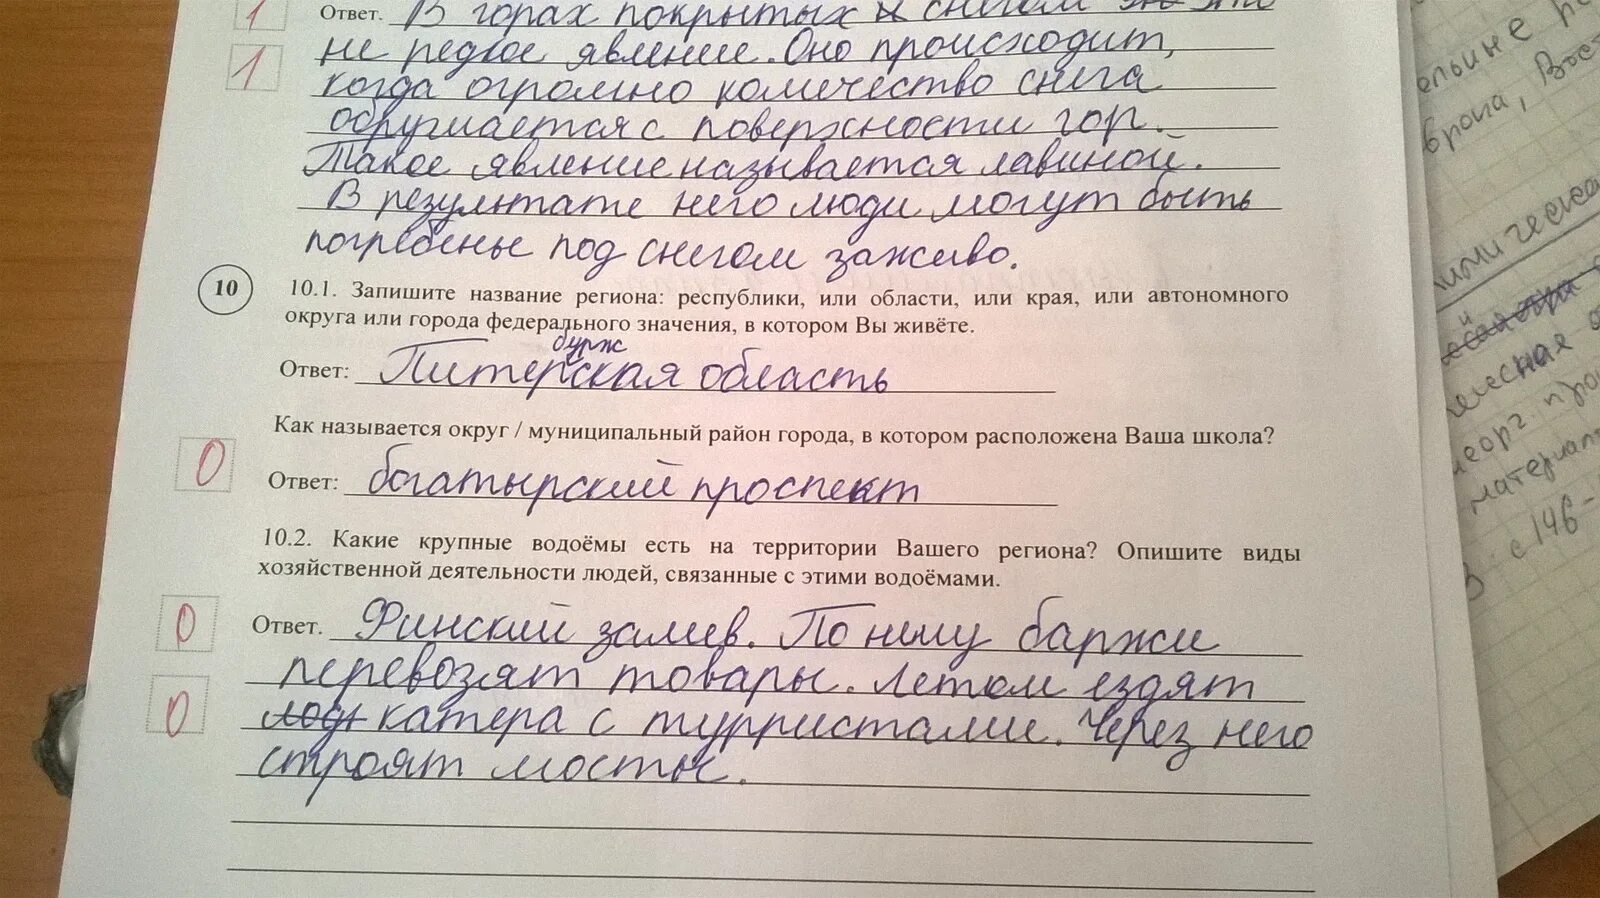 1
Ответ. В горах покрытых снегом это
1
не редкое явление. Оно происходит,
когда огромно количество снега
обрушается с поверхности гор.
Такое явление называется лавиной.
В результате него люди могут быть
погребены под снегом заживо.
10
10.1. Запишите название региона: республики, или области, или края, или автономного
округа или города федерального значения, в котором Вы живёте.
бурж
Ответ: Питерская область
Как называется округ / муниципальный район города, в котором расположена Ваша школа?
0
Ответ: богатырский проспект
10.2. Какие крупные водоёмы есть на территории Вашего региона? Опишите виды
хозяйственной деятельности людей, связанные с этими водоёмами.
0
Ответ. Финский залив. По нему баржи
перевозят товары. Летом ездят
0
катера с турристами. Через него
строят мосты.
с 146-